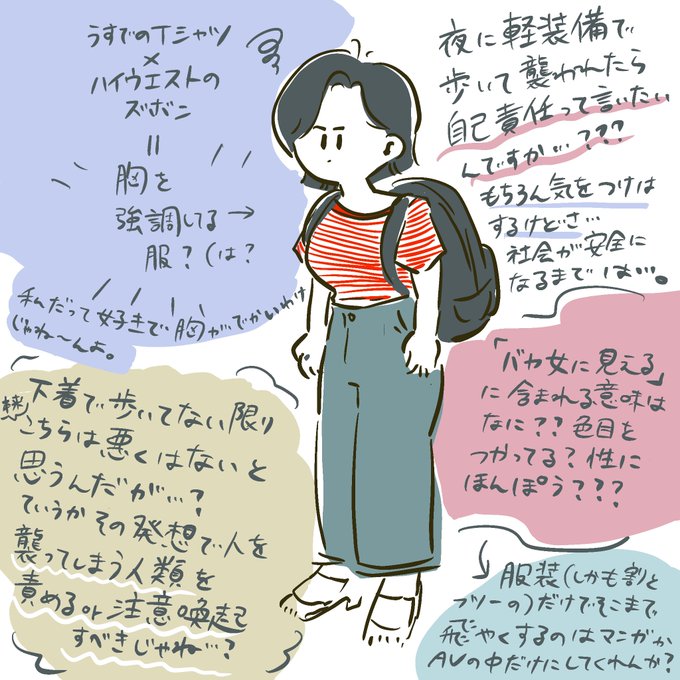 うすでのTシャツ
×
ハイウエストの
ズボン
=
胸を
強調してる→
服?(は?
私だって好きで胸がでかいわけ
じゃね〜んよ。
夜に軽装備で
歩いて襲われたら
自己責任って言いたい
んですか…???
もちろん気をつけは
するけどさ…
社会が安全に
なるまでは…。
「バカ女に見える」
に含まれる意味は
なに??色目を
つかってる?性に
ほんぽう???
下着で歩いてない限り
こちらは悪くはないと
思うんだが…?
ていうかその発想で人を
襲ってしまう人類を
責めるor注意喚起
すべきじゃね…?
服装(しかも割と
フツーの)だけでそこまで
飛やくするのはマンガか
AVの中だけにしてくれんか?